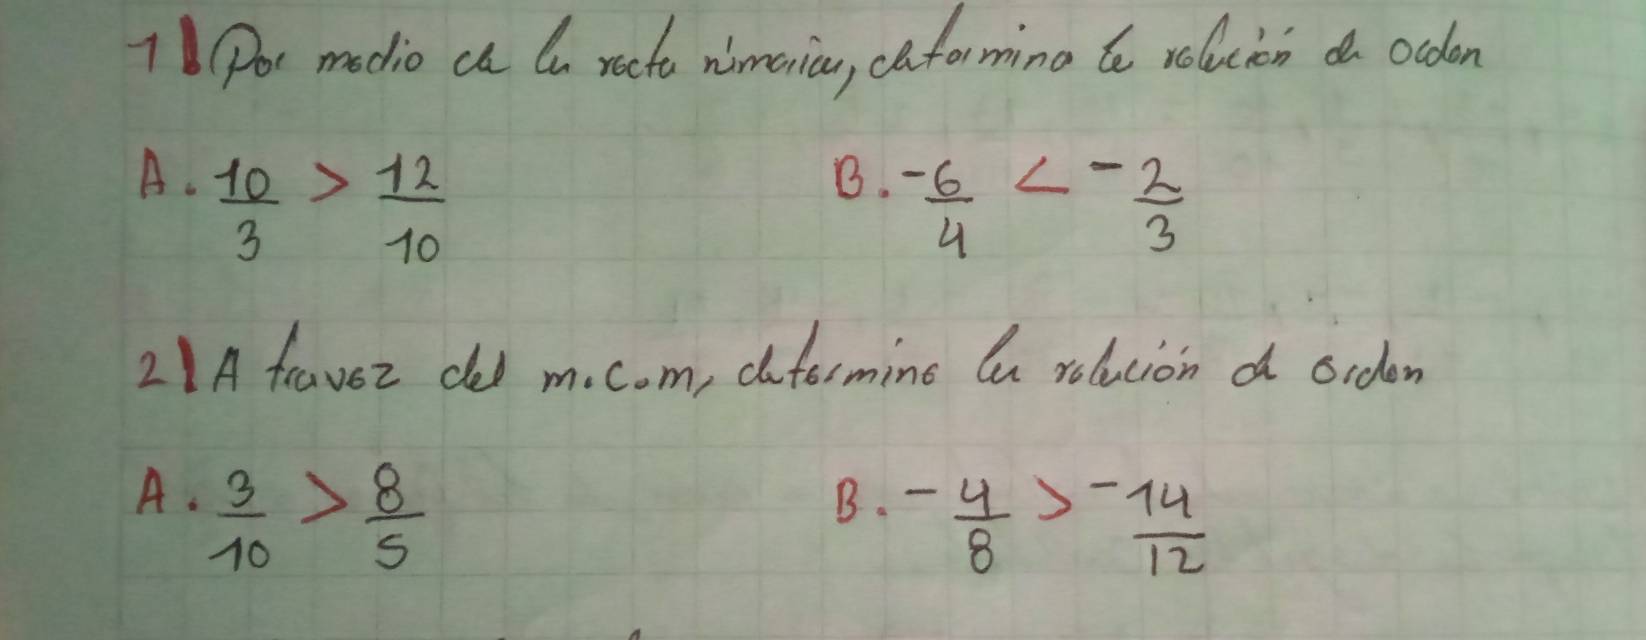 1) Por medio de la recta númerica, determina la relación de orden
A. 10/3 > 12/10 B. -6/4 < -2/3
2) A travez del m.c.m, determine la relación de orden
A. 3/10 > 8/5 B. -4/8 > -14/12